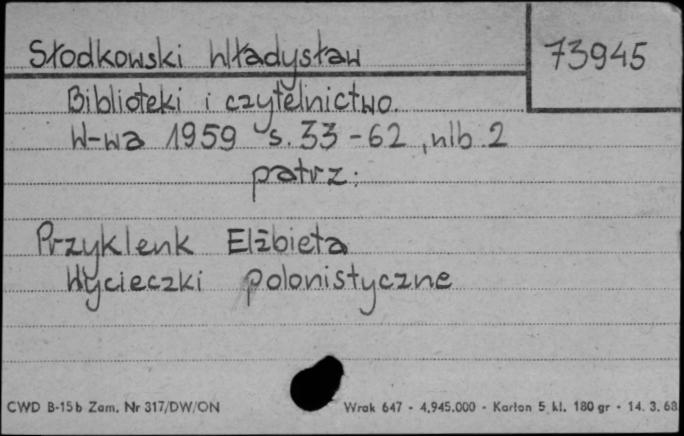 Słodkowski Władysław 73945
Biblioteki i czytelnictwo.
W-wa 1959 s. 33-62, nlb. 2
patrz:
Przyklenk Elżbieta
Wycieczki polonistyczne
CWD B-15b Zam. Nr 317/DW/ON Wrak 647 - 4,945.000 - Karton 5 kl. 180 gr - 14. 3. 68